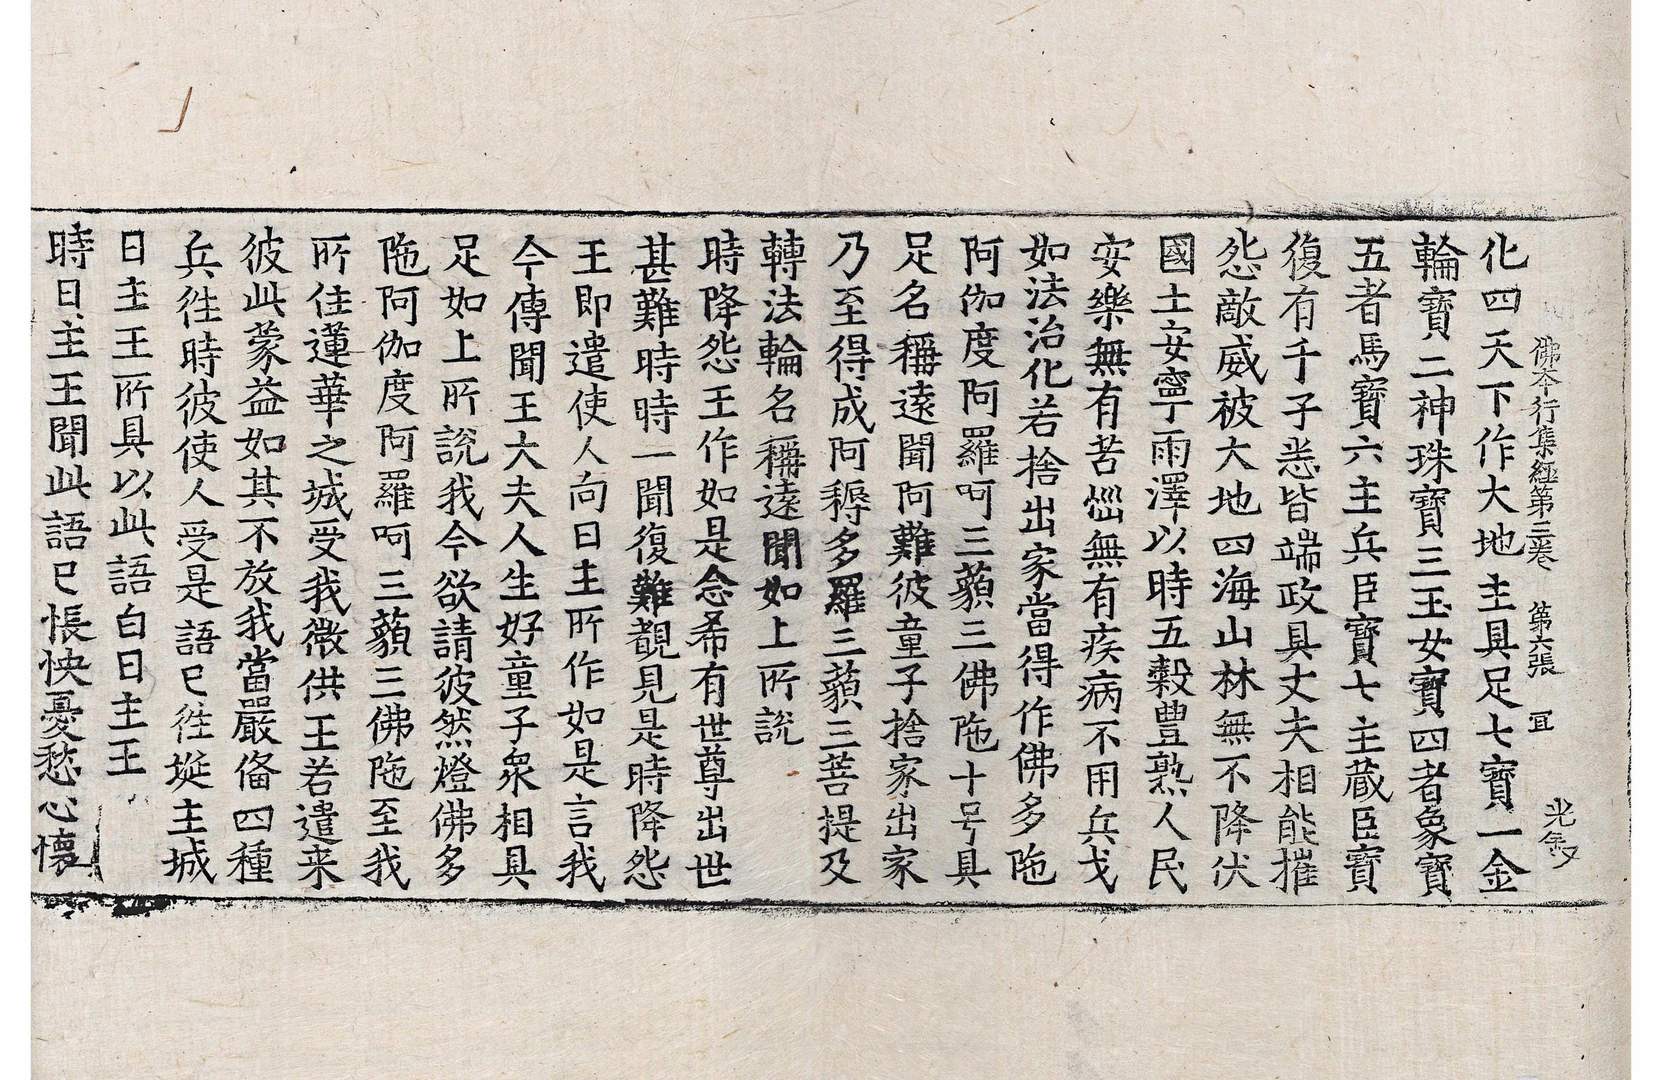 佛本行集經第三卷　第六張　冝
光金刄
化四天下作大地主具足七寶一金
輪寶二神珠寶三玉女寶四者象寶
五者馬寶六主兵臣寶七主蔵臣寶
復有千子悉皆端政具丈夫相能摧
怨敵威被大地四海山林無不降伏
國土安寧雨澤以時五穀豊熟人民
安樂無有苦惱無有疾病不用兵戈
如法治化若捨出家當得作佛多陁
阿伽度阿羅呵三藐三佛陁十号具
足名稱遠聞阿難彼童子捨家出家
乃至得成阿耨多羅三藐三菩提及
轉法輪名稱遠聞如上所說
時降怨王作如是念希有世尊出世
甚難時時一聞復難覩見是時降怨
王即遣使人向日主所作如是言我
今傳聞王大夫人生好童子衆相具
足如上所說我今欲請彼然燈佛多
陁阿伽度阿羅呵三藐三佛陁至我
所住蓮華之城受我微供王若遣来
彼此蒙益如其不放我當嚴俻四種
兵徃時彼使人受是語已徃埏主城
日主王所具以此語白日主王
時日主王聞此語已悵怏憂愁心懐